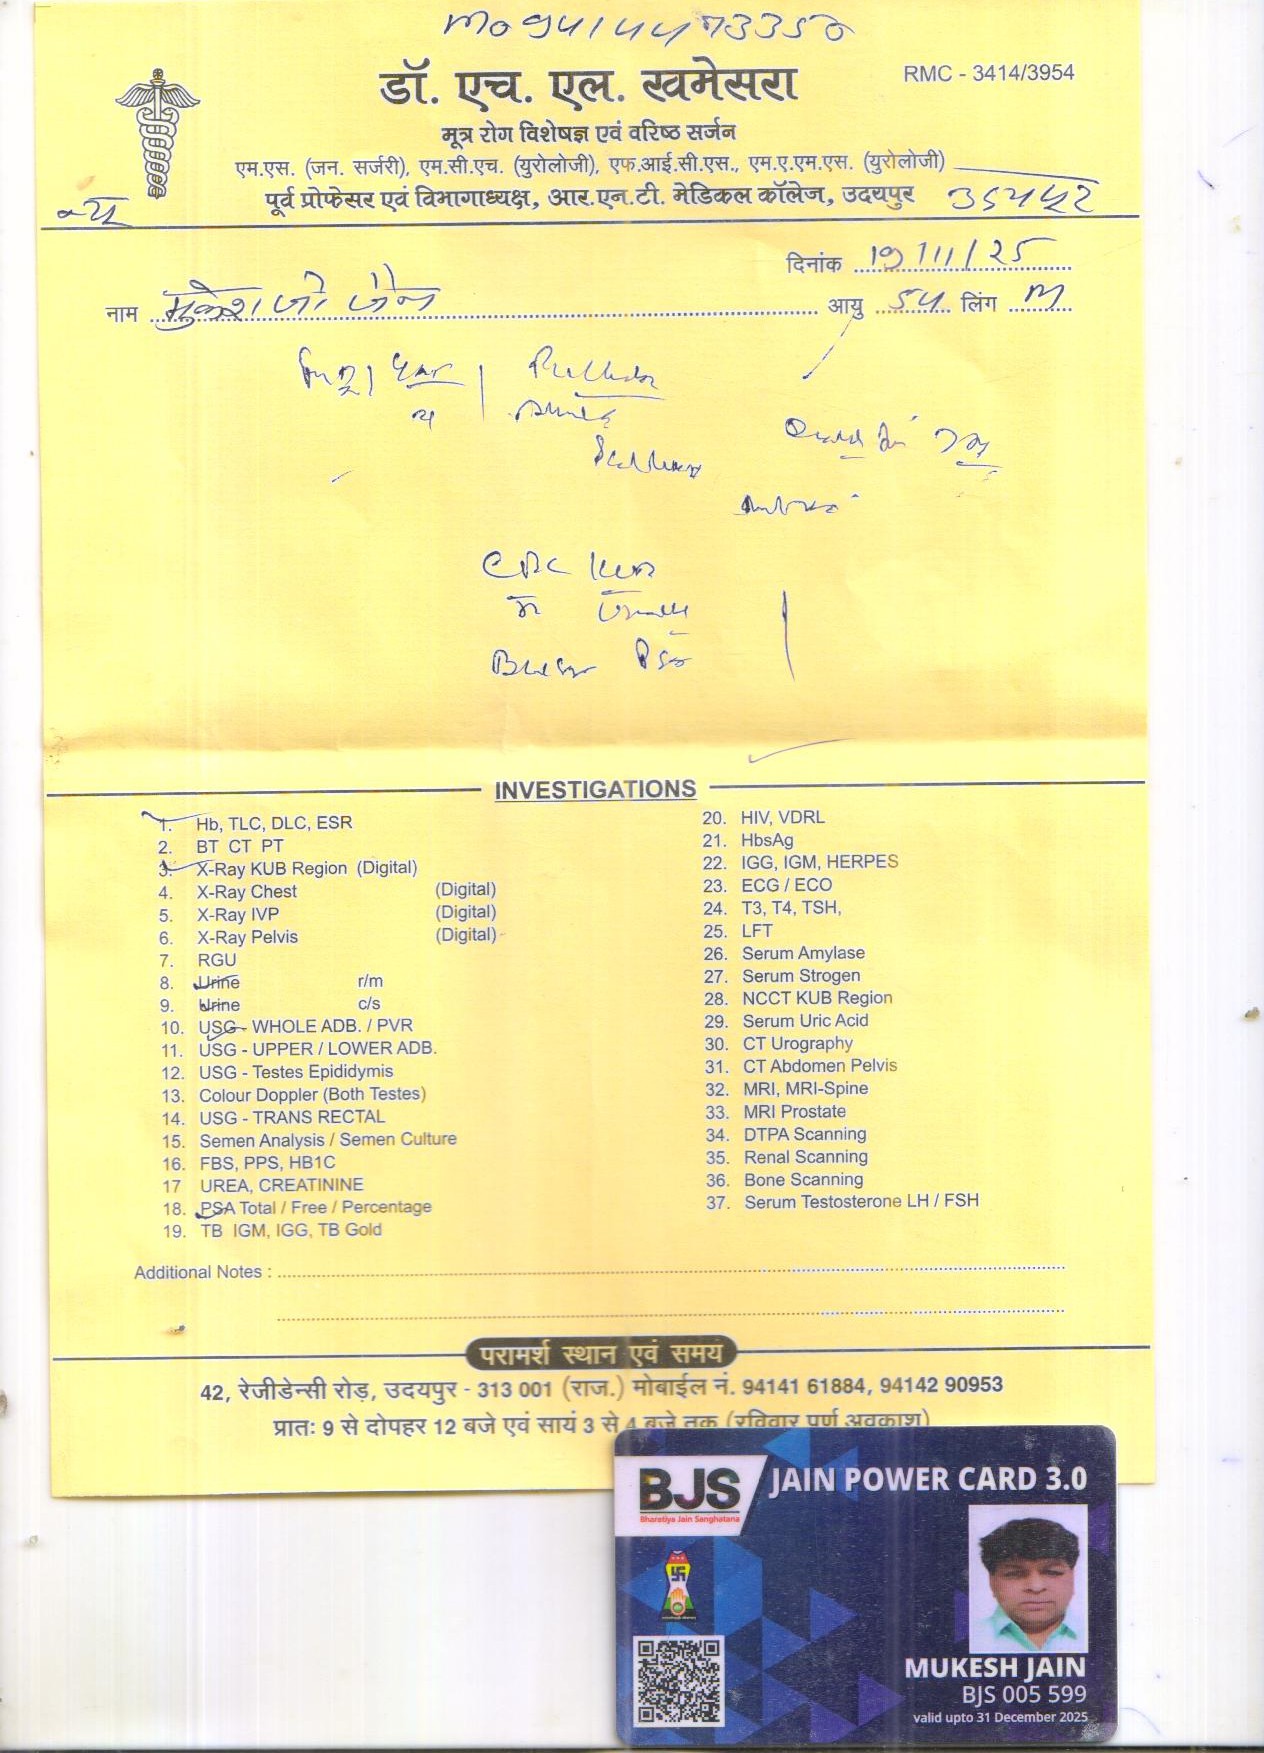 Mo 9414473350
डॉ. एच. एल. खमेसरा
RMC - 3414/3954
मूत्र रोग विशेषज्ञ एवं वरिष्ठ सर्जन
एम.एस. (जन. सर्जरी), एम.सी.एच. (यूरोलोजी), एफ.आई.सी.एस., एम.ए.एम.एस. (यूरोलोजी)
पूर्व प्रोफेसर एवं विभागाध्यक्ष, आर.एन.टी. मेडिकल कॉलेज, उदयपुर उदयपुर
दिनांक 19/11/25
नाम मुकेश जी जैन आयु 54 लिंग M
CBC KUB
Blood PSA
INVESTIGATIONS
1. Hb, TLC, DLC, ESR
2. BT CT PT
3. X-Ray KUB Region (Digital)
4. X-Ray Chest (Digital)
5. X-Ray IVP (Digital)
6. X-Ray Pelvis (Digital)
7. RGU
8. Urine r/m
9. Urine c/s
10. USG - WHOLE ADB. / PVR
11. USG - UPPER / LOWER ADB.
12. USG - Testes Epididymis
13. Colour Doppler (Both Testes)
14. USG - TRANS RECTAL
15. Semen Analysis / Semen Culture
16. FBS, PPS, HB1C
17 UREA, CREATININE
18. PSA Total / Free / Percentage
19. TB IGM, IGG, TB Gold
20. HIV, VDRL
21. HbsAg
22. IGG, IGM, HERPES
23. ECG / ECO
24. T3, T4, TSH,
25. LFT
26. Serum Amylase
27. Serum Strogen
28. NCCT KUB Region
29. Serum Uric Acid
30. CT Urography
31. CT Abdomen Pelvis
32. MRI, MRI-Spine
33. MRI Prostate
34. DTPA Scanning
35. Renal Scanning
36. Bone Scanning
37. Serum Testosterone LH / FSH
Additional Notes :
परामर्श स्थान एवं समय
42, रेजीडेन्सी रोड़, उदयपुर - 313 001 (राज.) मोबाईल नं. 94141 61884, 94142 90953
प्रातः 9 से दोपहर 12 बजे एवं सायं 3 से 4 बजे तक (रविवार पूर्ण अवकाश)
BJS JAIN POWER CARD 3.0
Bharatiya Jain Sanghatana
MUKESH JAIN
BJS 005 599
valid upto 31 December 2025